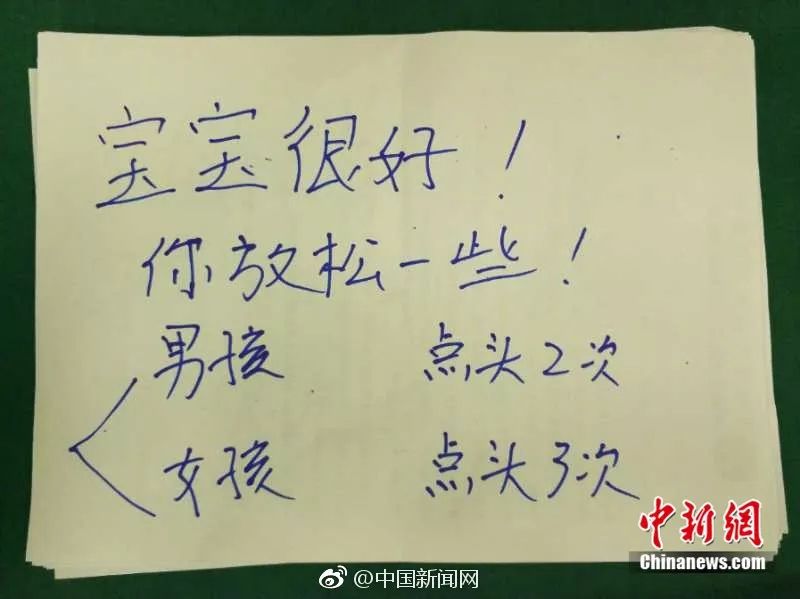 宝宝很好！
你放松一些！
男孩 点头2次
女孩 点头3次
中新網
Chinanews.com
@中国新闻网